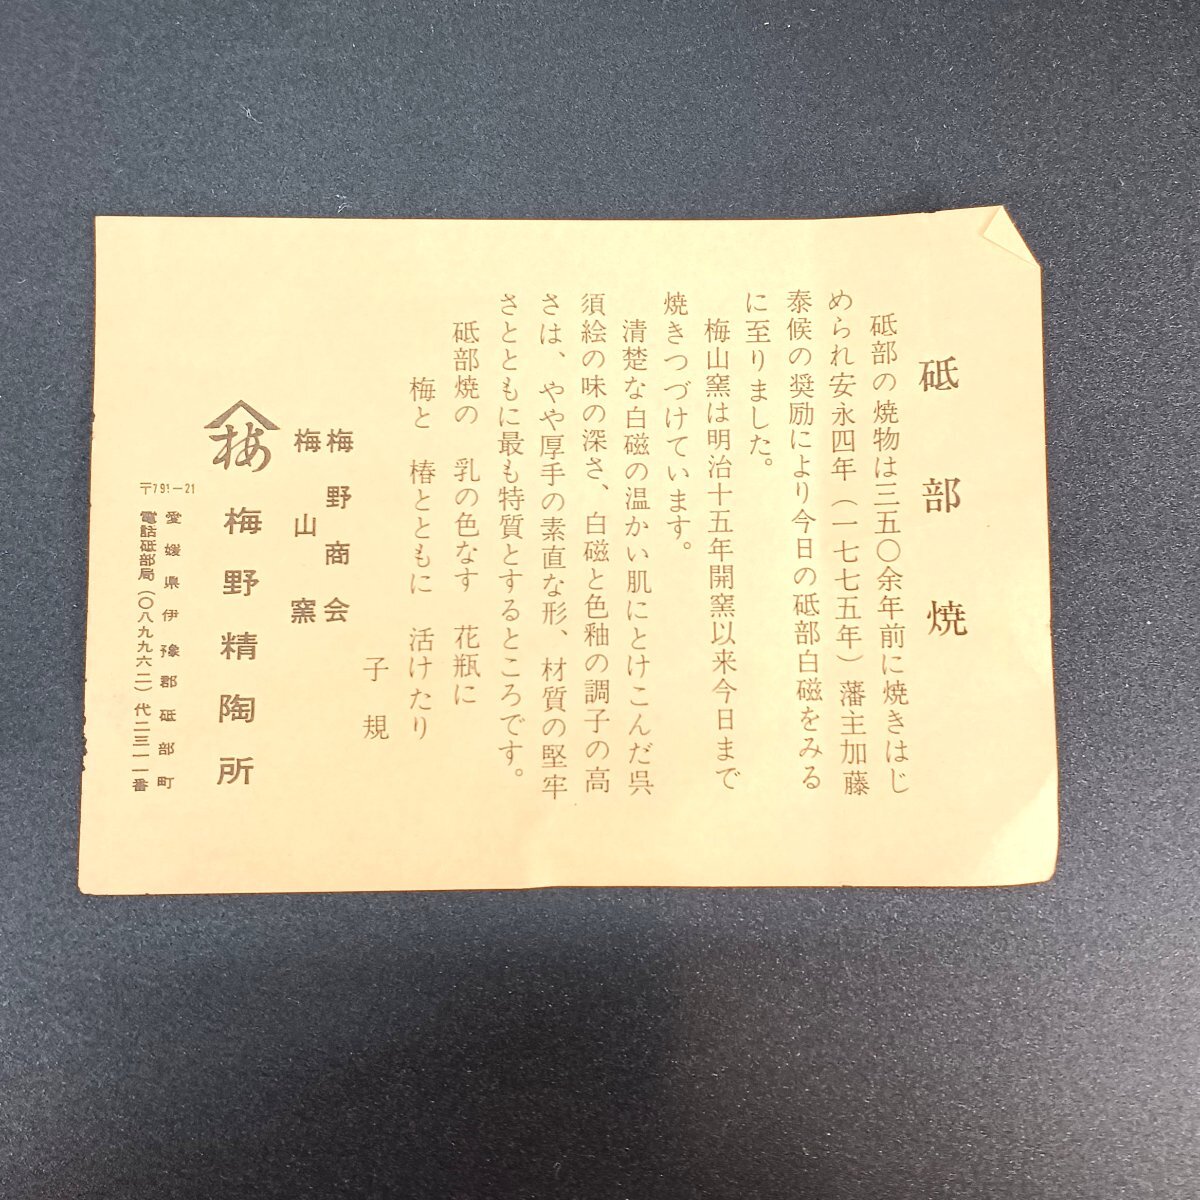 砥部焼
砥部の焼物は三五〇余年前に焼きはじ
められ安永四年（一七七五年）藩主加藤
泰候の奨励により今日の砥部白磁をみる
に至りました。
梅山窯は明治十五年開窯以来今日まで
焼きつづけています。
清楚な白磁の温かい肌にとけこんだ呉
須絵の味の深さ、白磁と色釉の調子の高
さは、やや厚手の素直な形、材質の堅牢
さとともに最も特質とするところです。
砥部焼の　乳の色なす　花瓶に
梅と　椿とともに　活けたり
子規
梅野商会
梅山窯
梅
梅野精陶所
〒791-21
愛媛県伊豫郡砥部町
電話砥部局（〇八九九六二）代二三一一番